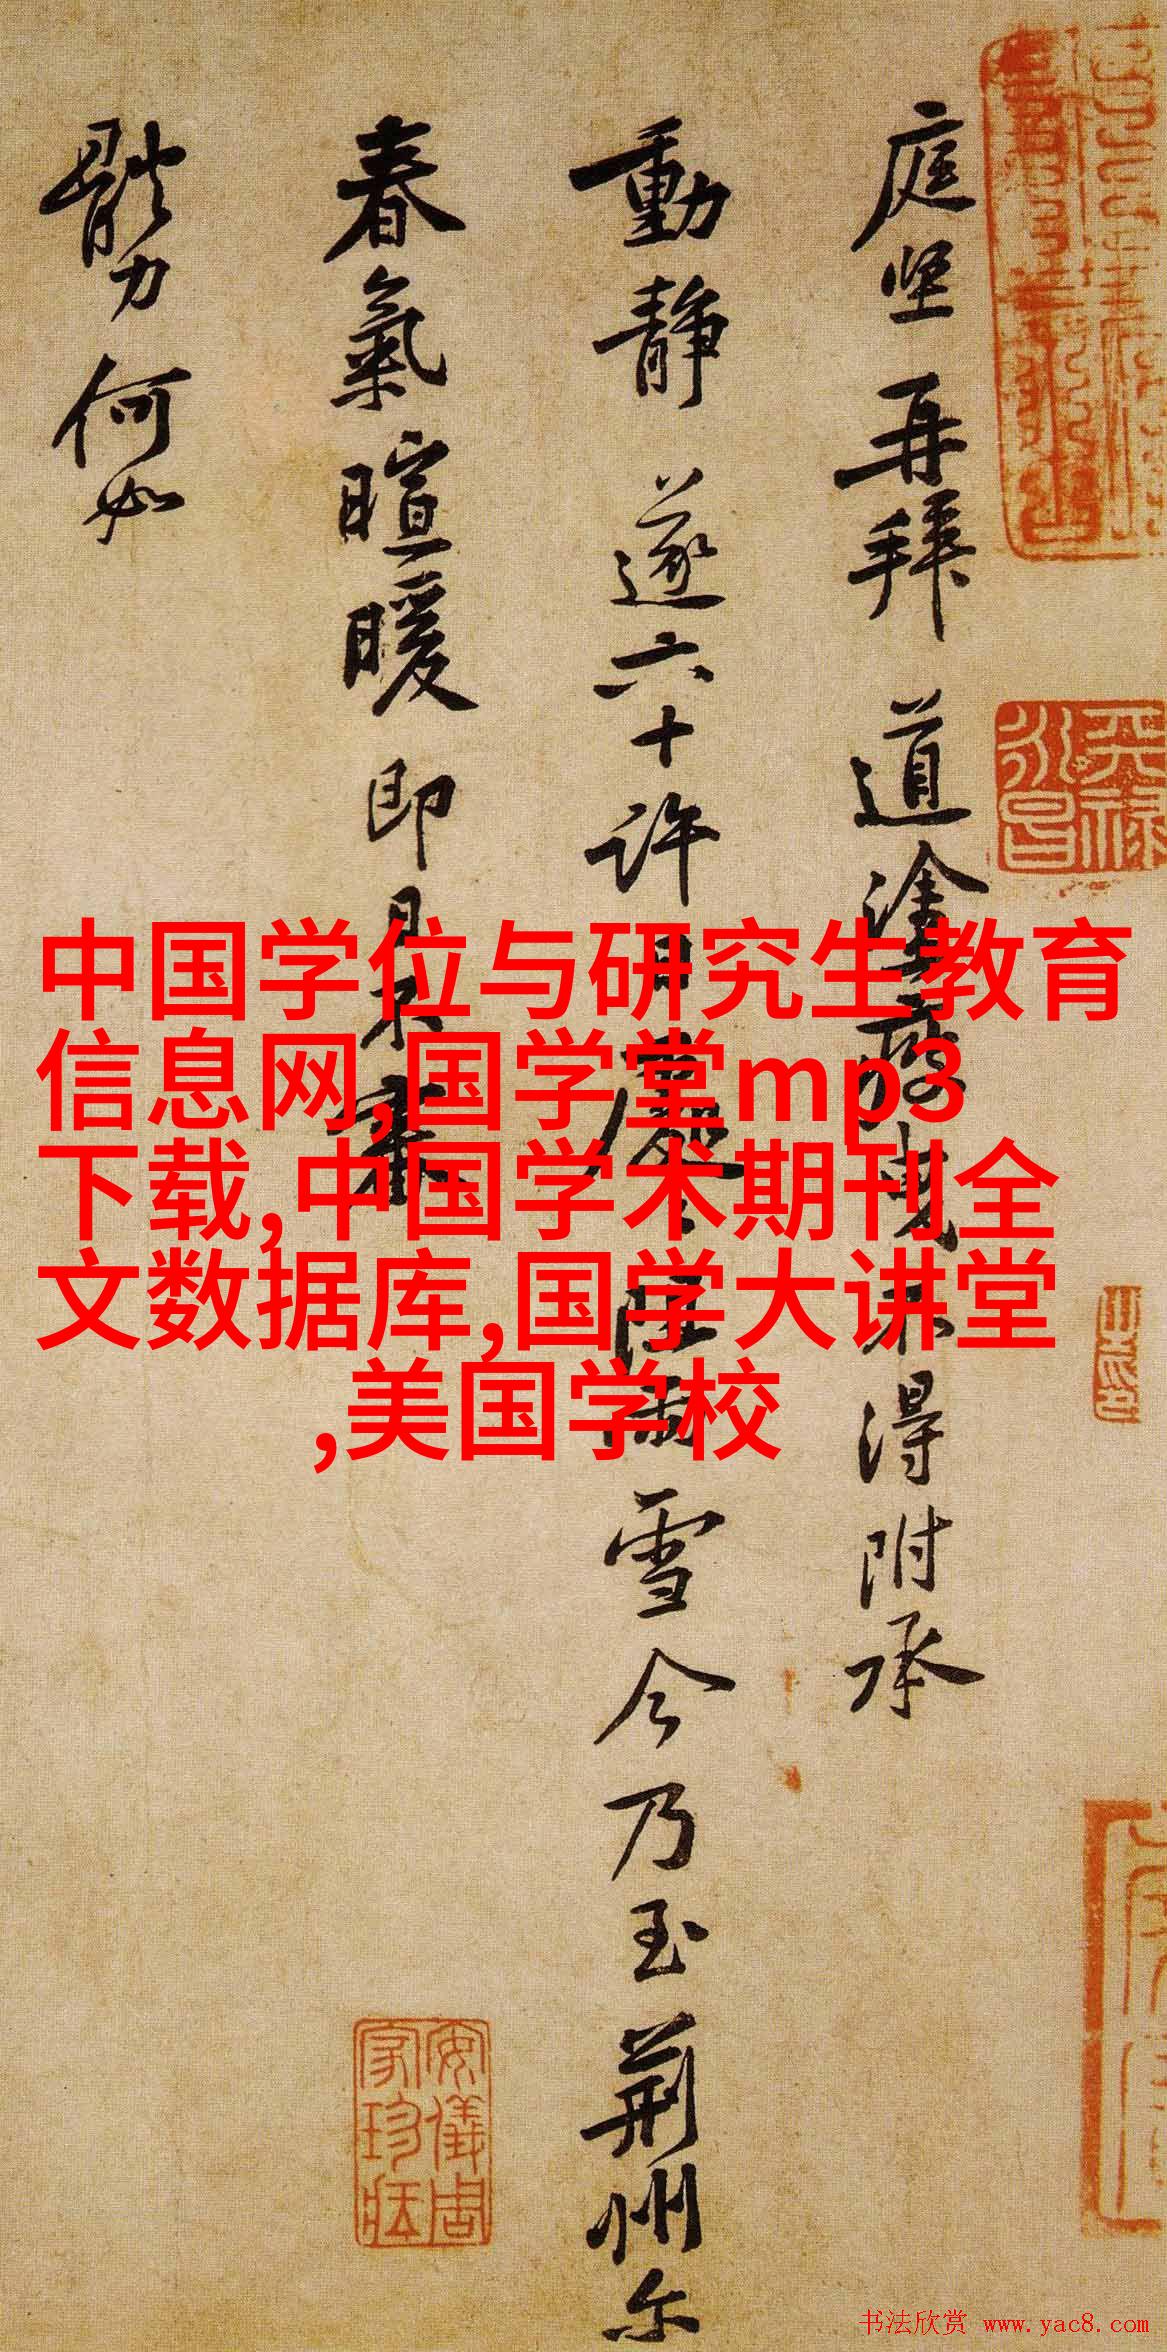 庭坚再拜道塗疲曳不得附承
動静遂六十許日
雪今乃至荆州尔
春氣暄暖即日不審
體力何如
中国学位与研究生教育
信息网,国学堂mp3
下载,中国学术期刊全
文数据库,国学大讲堂
,美国学校
天禄
永昌
安儀周
家珍藏
书法欣赏 www.yac8.com